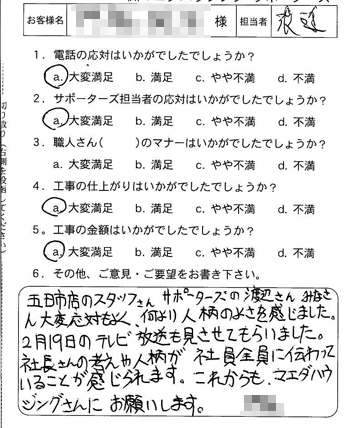 お客様名 様 担当者 渡辺
1．電話の応対はいかがでしたでしょうか？
a. 大変満足 b. 満足 c. やや不満 d. 不満
2．サポーターズ担当者の応対はいかがでしたでしょうか？
a. 大変満足 b. 満足 c. やや不満 d. 不満
3．職人さん（ ）のマナーはいかがでしたでしょうか？
a. 大変満足 b. 満足 c. やや不満 d. 不満
4．工事の仕上がりはいかがでしたでしょうか？
a. 大変満足 b. 満足 c. やや不満 d. 不満
5．工事の金額はいかがでしたでしょうか？
a. 大変満足 b. 満足 c. やや不満 d. 不満
6．その他、ご意見・ご要望をお書き下さい。
五日市店のスタッフさん サポーターズの渡辺さん みなさ
ん大変応対もよく、何より人柄のよさを感じました。
2月19日のテレビ放送も見させてもらいました。
社長さんの考えや人柄が 社員全員に伝わって
いることが感じられます。これからも、マエダハウ
ジングさんに お願いします。